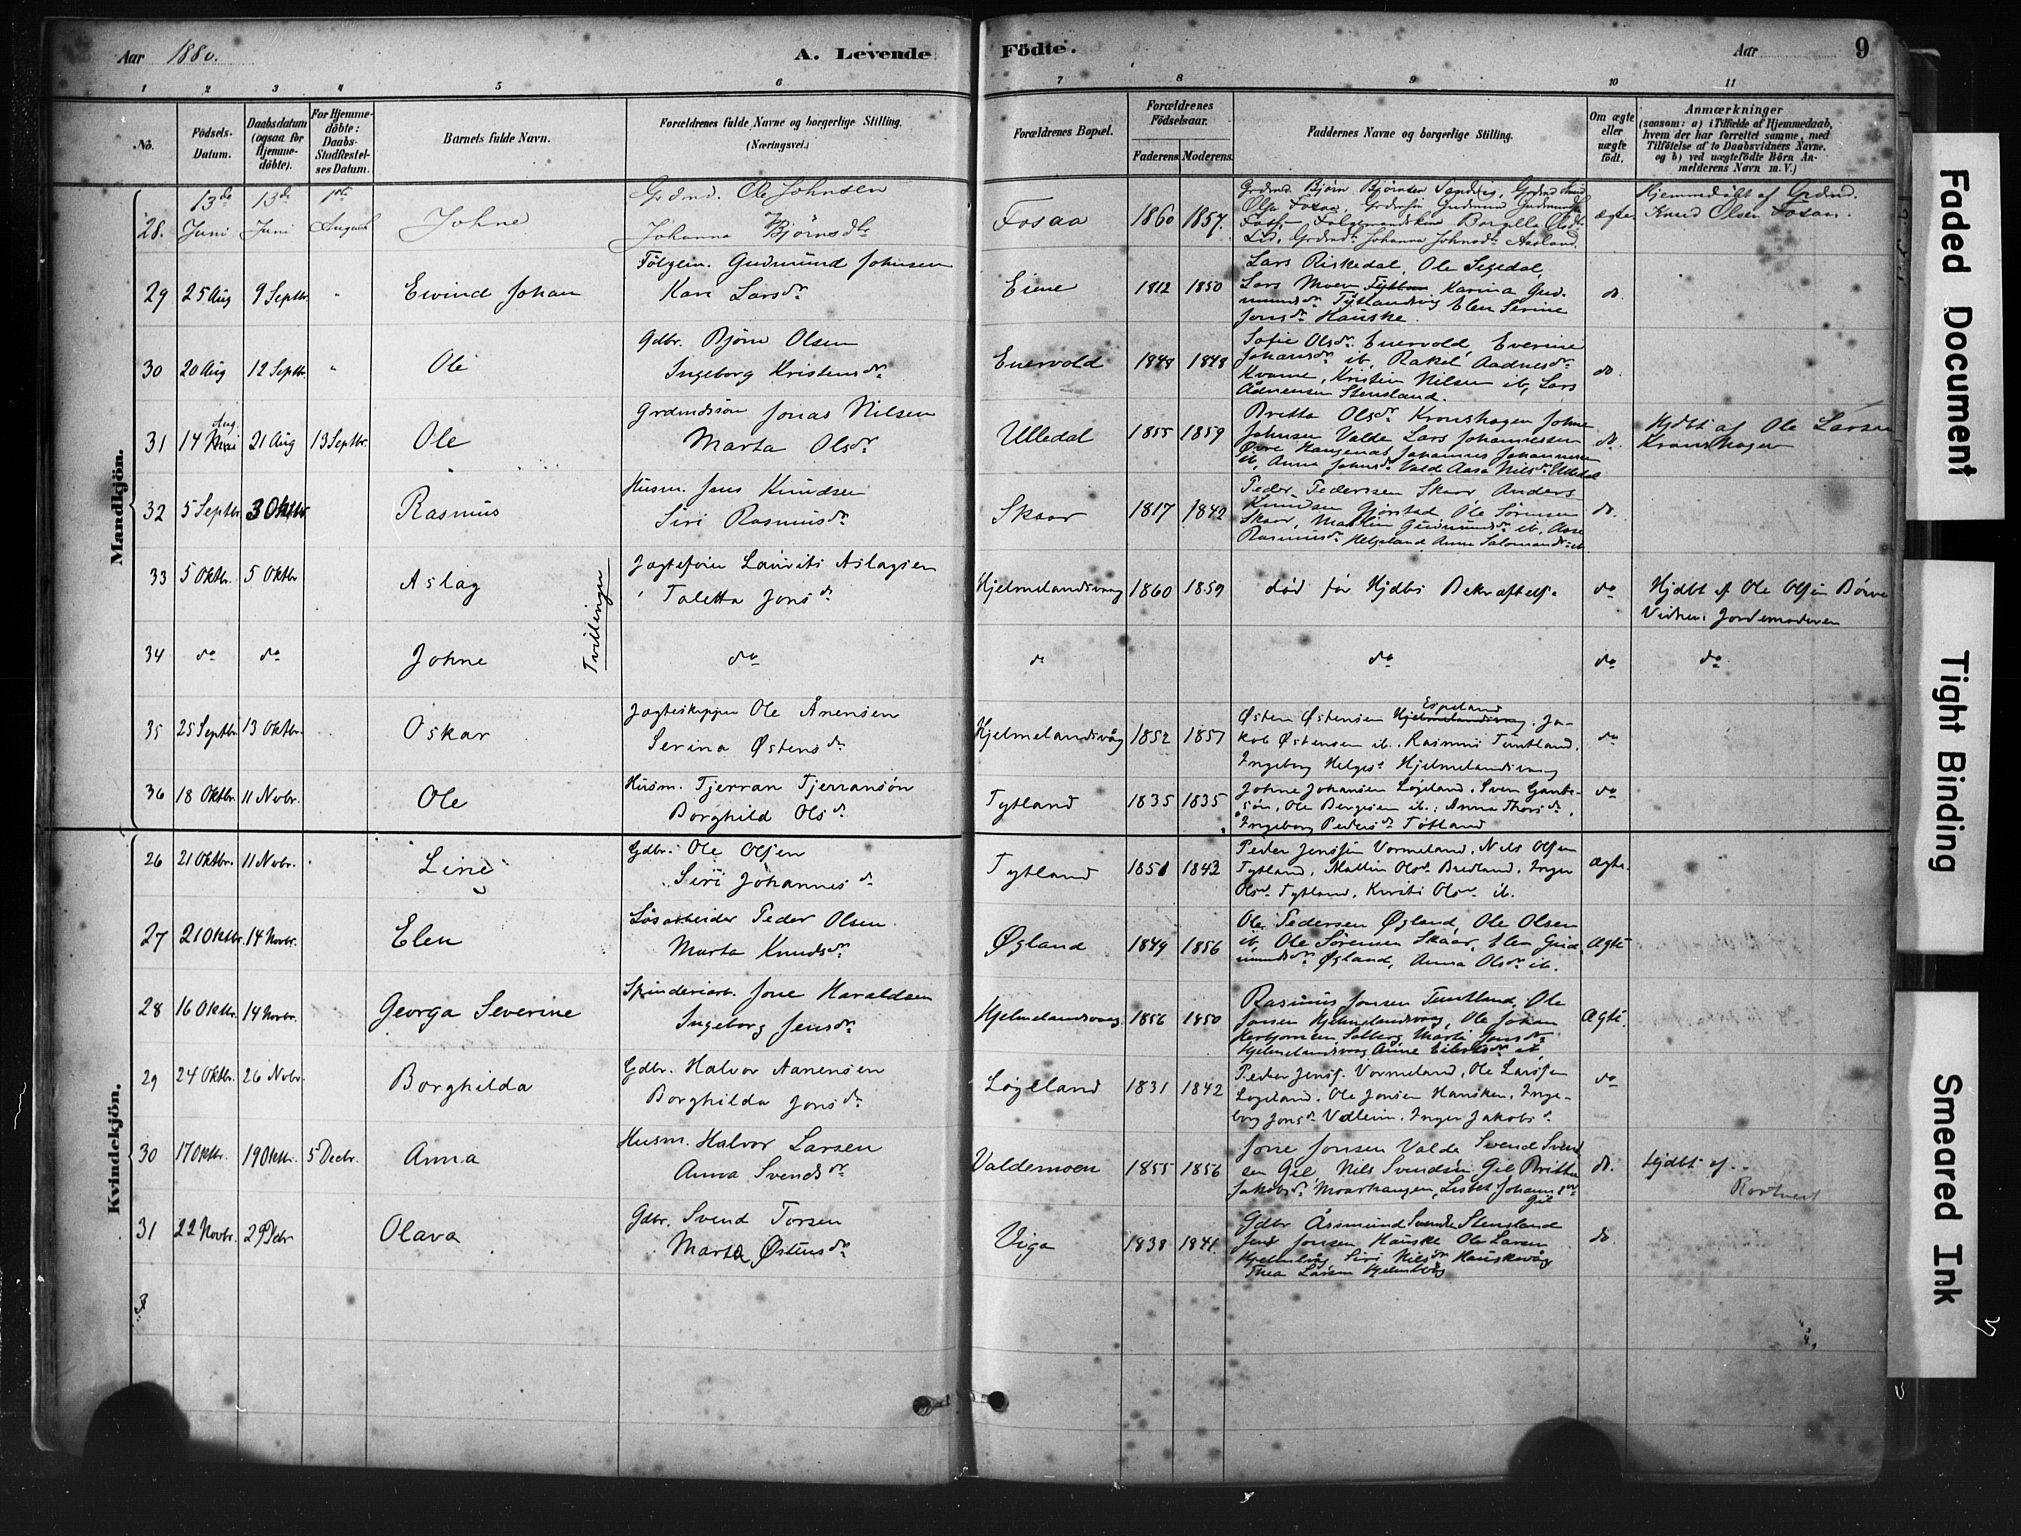 Aar 1880. A. Levende Födte. Aar 9
1 2 3 4 5 6 7 8 9 10 11
No. Födsels-Datum. Daabsdatum (ogsaa for Hjemmedöbte). For Hjemmedöbte: Daabs-Stadfæstelses Datum. Barnets fulde Navn. Forældrenes fulde Navne og borgerlige Stilling. (Næringsvei.) Forældrenes Bopæl. Forældrenes Födselsaar. Faderens. Moderens. Faddernes Navne og borgerlige Stilling. Om ægte eller uægte födt. Anmærkninger (saasom: a) i Tilfælde af Hjemmedaab, hvem der har forrettet samme, med Tilföielse af to Daabsvidners Navne, og b) ved uægtefödte Börn Anmelderens Navn m. V.)
Mandkjön.
28. 13de Juni 13de Juni 1ste August Johne Grdmd. Ole Johnsen
Johanna Bjørnsdtr Fosaa 1860 1857. Grdmd. Bjørn Bjørnsen Sandvig, Grdmd Knud
Olsen Fosaa, Gudmund
Borgilla Olsdtr
Lid, Johanna Johnsdtr Aasland. ægte Hjemmedöbt af Grdmd.
Knud Olsen Fosaa.
29 25 Aug 9 Septbr. " Eivind Johan Følgem. Gudmund Johnsen
Kari Larsdr Eiene 1812 1850 Lars Riskedal, Ole Segedal,
Lars Moen Karina Gud-
mundsdr Tytlandsvig Elen Serine
Jonsdr Hauske. do.
30 20 Aug 12 Septbr. " Ole Gdbr. Bjørn Olsen
Ingeborg Kristensdr Enervold 1848 1848 Sofie Olsdr Enervold Everine
Johansdr ib, Rakel Aadnesdr
Kvame, Kristen Nilsen ib, Lars
Ådnensen Stensland. do.
31 14 Mai Aug. 21 Aug 13 Septbr. Ole Grdmdssøn Jonas Nilsen
Marta Olsdr Ulledal 1855 1859 Britta Olsdr Kronshagen Johne
Johnsen Valde Lars Johannessen
Øvre Haugenes Johannes Johannessen
ib, Anna Johnsdr Valde Aasa Nilsdr Ulledal do. Hjdbt af Ole Larsen
Kronshagen
32 5 Septbr. 3 Oktbr Rasmus Husm. Jens Knudsen
Siri Rasmusdr Skaar 1817 1842 Peder Pedersen Skaar Anders
Knudsen Gjørstad Ole Sørensen
Skaar, Gudmundsdr ib, Aase
Rasmusdr Helgeland Anne Salomonsdr ib do.
33 5 Oktbr. 5 Oktbr Aslag Tvillinger Jagtefører Laurits Aslagsen
Taletta Jonsdr Hjelmelandsvaag 1860 1859 død før Hjdbs Bekræftelse do Hjdbt af Ole Olsen Børve
Vidner. Jordemoderen
34 do do Johne do do do do do.
35 25 Septbr 13 Oktbr. Oskar Jagteskipper Ole Ånensen
Serina Østensdr Hjelmelandsvåg 1852 1857 Østen Østensen Hjelmelandsvaag Espeland. Ja-
kob Østensen ib. Rasmus Tuntland.
Ingeborg Helgesd Hjelmelandsvaag do
36 18 Oktbr. 11 Novbr. Ole Husm. Tjerran Tjerransøn
Borghild Olsdr Tytland 1835 1835 Johne Johansen Løgeland. Sven Gaute-
søn, Ole Bergesen ib., Anna Thorsdr.
Ingeborg Pedersdr Tøtland do
Kvindekjön.
26 21 Oktbr. 11 Novbr. Line Gdbr. Ole Olsen
Siri Johannesdr Tytland 1851 1843 Peder Jenssen Vormeland, Nils Olsen
Tytland, Mallin Olsd Bredland. Inger
Olsd. Tytland, Kirsti Olsd ib. Ægte.
27 21 Oktbr. 14 Novbr. Elen Løsarbeider Peder Olsen
Marta Knudsdr Øgland 1849 1856 Ole Pedersen Øgland, Ole Olsen
ib, Ole Sørensen Skaar, Elen Gud-
mundsdr Øgland, Anna Olsdr ib. Ægte
28 16 Oktbr. 14 Novbr. Georga Severine Spinderiarb. Jone Haraldsen
Ingeborg Jensdr Hjelmelandsvaag 1856 1850 Rasmus Jonsen Tuntland, Ole
Jonsen Hjelmelandsvaag, Ole Johan
Solberg, Marta Jonsdr
Hjelmelandsvaag Anne Eilertsdr ib Ægte.
29 24 Oktbr. 26 Novbr. Borghilda Gdbr. Halvor Aanensen
Borghilda Jonsdr Løgeland 1831 1842 Peder Jensen Vormeland, Ole Larssen
Løgeland. Ole Jonsen Hausken. Inge-
borg Jonsd Vatleim. Inger Jakobsd do
30 17 Oktbr. 19 Oktbr. 5 Decbr. Anna Husm. Halvor Larsen
Anna Svendsdr Valdemoen 1855 1856 Jone Jonsen Valde Svend Svend
sen Gil, Nils Svendsen Gil Britha
Jakobsdr Moarhaugen, Lisbet Johannesdr
Gil do. Hjdbt af
31 22 Novbr. 29 Debr Olava Gdbr. Svend Torsen
Marta Østensdr Viga 1838 1841. Gdbr Åsmund Svendsen Stensland
Jens Jonsen Hauske Ole Larsen
Hjelmelvåg, Siri Nilsdr Hauskevåg
Thea Larsen Hjelmelvåg do.
Faded Document
Tight Binding
Smeared Ink